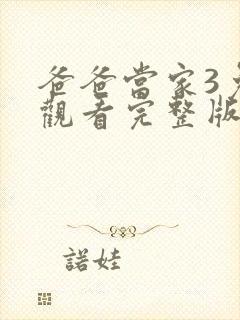 爸爸當家3
觀看完整版
諾娃